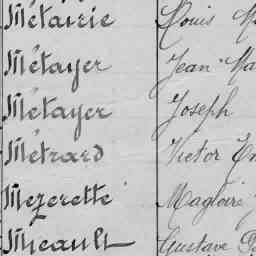 Métairie Louis
Métayer Jean
Métayer Joseph
Métrard Victor
Mezerette Magloire
Mieault Gustave